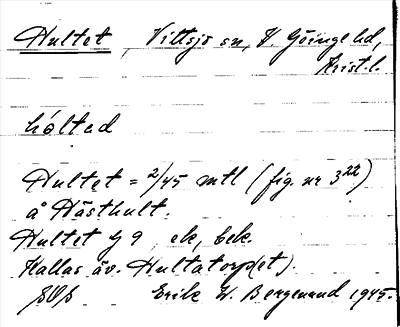 Hultet, Vittsjö sn, V. Göinge hd,
Krist. l.
hóltad
Hultet = 2/45 mtl (fig. nr 3²²)
å Hästhult.
Hultet G 9 ek, bek.
Kallas äv. Hultatorp(et).
Erik W. Bergenrud 1945.